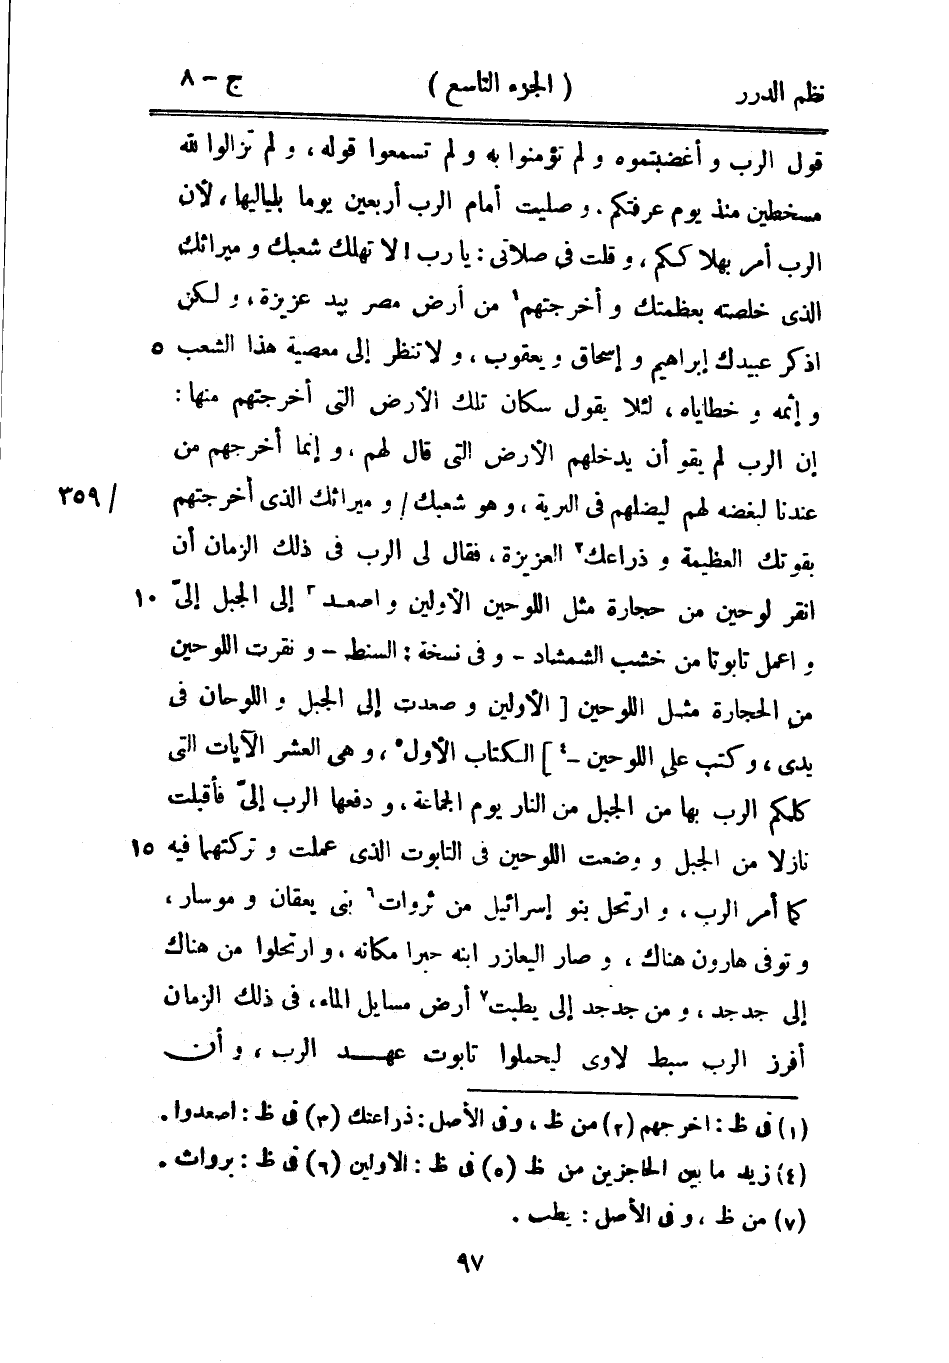 نظم الدرر ( الجزء التاسع ) ج – ٨
قول الرب و أغضبتموه و لم تؤمنوا به و لم تسمعوا قوله ، و لم تزالوا لله
مسخطين منذ يوم عرفتكم . و صليت أمام الرب أربعين يوما بلياليها ، لأن
الرب أمر بهلاككم ، و قلت فى صلاتى : يا رب ! لا تهلك شعبك و ميراثك
الذى خلصته بعظمتك و أخرجتهم١ من أرض مصر بيد عزيزة ، و لكن
اذكر عبيدك إبراهيم و إسحاق و يعقوب ، و لا تنظر إلى معصية هذا الشعب ٥
و إثمه و خطاياه ، لئلا يقول سكان تلك الأرض التى أخرجتهم منها :
إن الرب لم يقو أن يدخلهم الأرض التى قال لهم ، و إنما أخرجهم من
عندنا لبغضه لهم ليضلهم فى البرية ، و هو شعبك / و ميراثك الذى أخرجتهم / ٣٥٩
بقوتك العظيمة و ذراعك٢ العزيزة ، فقال لى الرب فى ذلك الزمان أن
انقر لوحين من حجارة مثل اللوحين الأولين و اصعد٣ إلى الجبل إلىّ ١٠
و اعمل تابوتا من خشب الشمشاد – و فى نسخة : السنط – و نقرت اللوحين
من الحجارة مثل اللوحين [ الأولين و صعدت إلى الجبل و اللوحان فى
يدى ، و كتب على اللوحين –٤ ] الكتاب الأول٥ ، و هى العشر الآيات التى
كلمكم الرب بها من الجبل من النار يوم الجماعة ، و دفعها الرب إلىّ فأقبلت
نازلا من الجبل و وضعت اللوحين فى التابوت الذى عملت و تركتهما فيه ١٥
كما أمر الرب ، و ارتحل بنو إسرائيل من ثروات٦ بنى يعقان و موسار ،
و توفى هارون هناك ، و صار اليعازر ابنه حبرا مكانه ، و ارتحلوا من هناك
إلى جدجد ، و من جدجد إلى يطبت٧ أرض مسايل الماء ، فى ذلك الزمان
أفرز الرب سبط لاوى ليحملوا تابوت عهد الرب ، و أن
(١) فى ظ : اخرجهم (٢) من ظ ، و فى الأصل : ذراعتك (٣) فى ظ : اصعدوا .
(٤) زيد ما بين الحاجزين من ظ (٥) فى ظ : الاولين (٦) فى ظ : بروات .
(٧) من ظ ، و فى الأصل : يطب .
٩٧